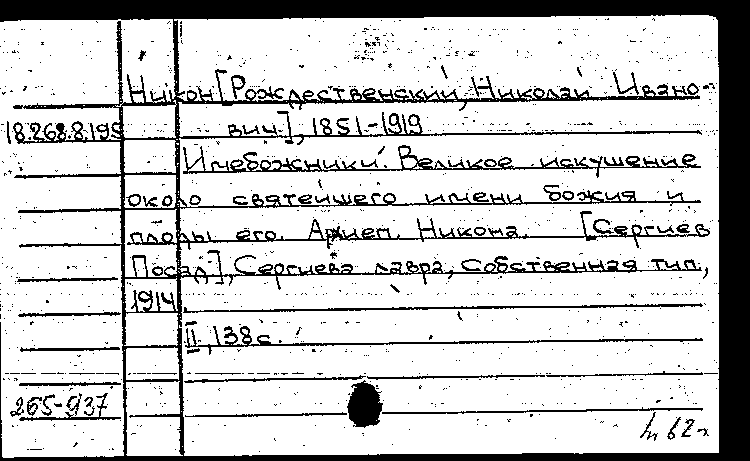 Никон [Рождественский, Николай Ивано-
18.268.8.195 вич.], 1851-1919
Имебожники. Великое искушение
около святейшего имени божия и
плоды его. Архиеп. Никона. [Сергиев
Посад], Сергиева лавра, Собственная тип.,
1914.
II, 138 с.
265-937